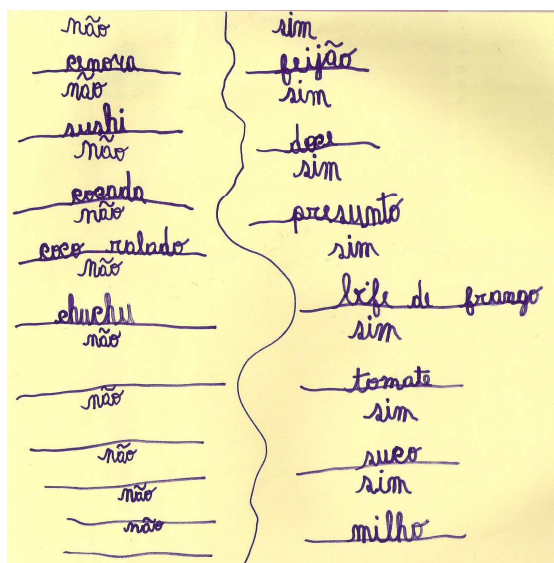 não
cenora
não
sushi
não
cocada
não
coco ralado
não
chuchu
não
não
não
não
não
sim
feijão
sim
doce
sim
presunto
sim
bife de frango
sim
tomate
sim
suco
sim
milho